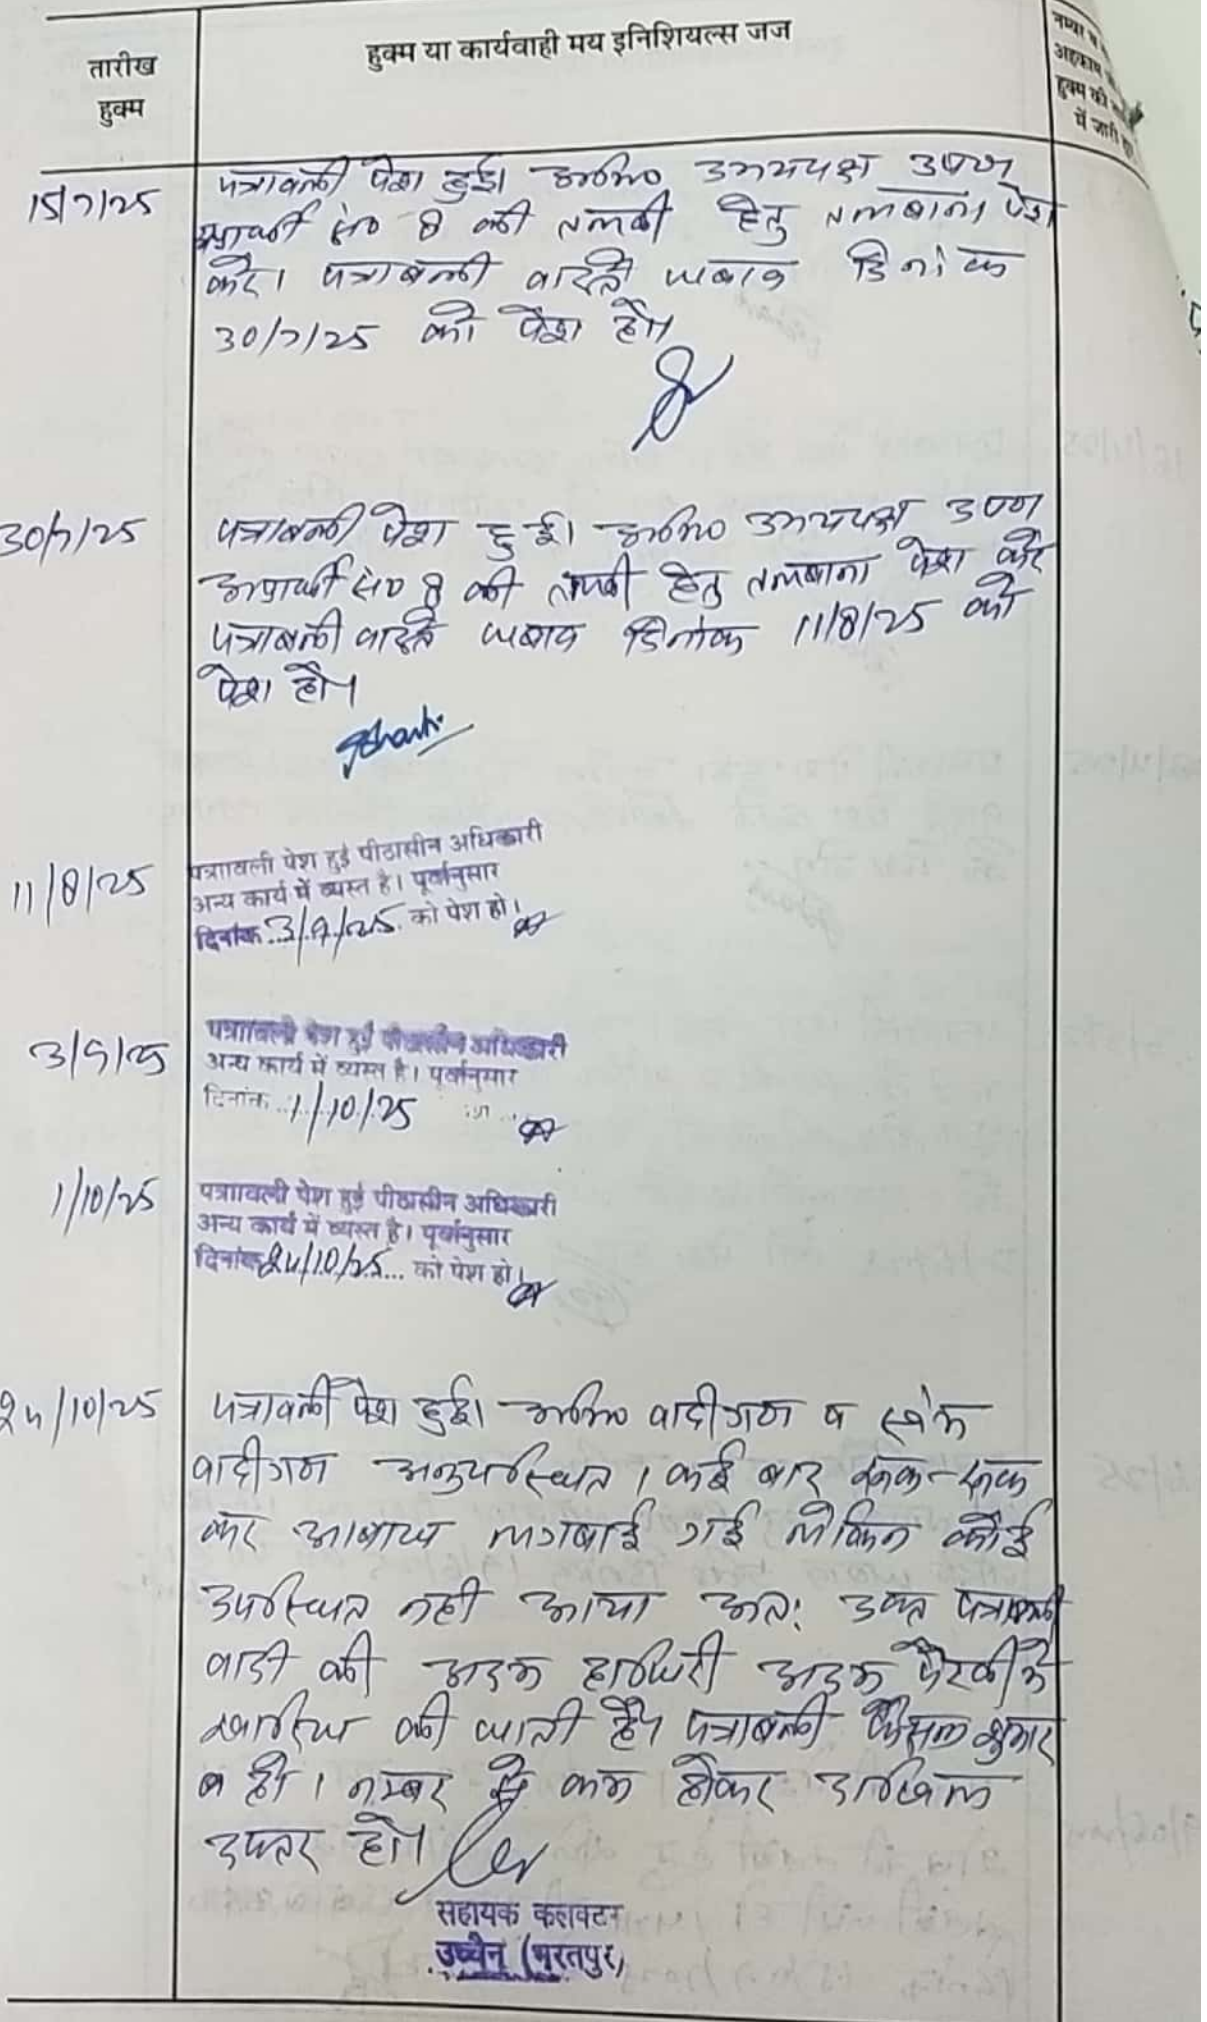 तारीख
हुक्म
हुक्म या कार्यवाही मय इनिशियल्स जज
नम्बर व
अहकाम
हुक्म की
में जारी
15/7/25
पत्रावली पेश हुई। अभि० उभयपक्ष उप०
अप्रार्थी सं० 8 की तलबी हेतु तलबाना पेश
करे। पत्रावली वास्ते जबाव दिनांक
30/7/25 को पेश हो।
30/7/25
पत्राबली पेश हुई। अभि० उभयपक्ष उप०
अप्रार्थी सं० 8 की तलबी हेतु तलबाना पेश करे
पत्राबली वास्ते जबाव दिनांक 11/8/25 को
पेश हो।
11/8/25
पत्राावली पेश हुई पीठासीन अधिकारी
अन्य कार्य में व्यस्त है। पूर्वानुसार
दिनांक 3/9/25 को पेश हो।
3/9/25
पत्राावली पेश हुई पीठासीन अधिकारी
अन्य कार्य में व्यस्त है। पूर्वानुसार
दिनांक 1/10/25
1/10/25
पत्राावली पेश हुई पीठासीन अधिकारी
अन्य कार्य में व्यस्त है। पूर्वानुसार
दिनांक 24/10/25 को पेश हो।
24/10/25
पत्रावली पेश हुई। अभि० वादीगण व स्वंम
वादीगण अनुपस्थित। कई बार रूक-रूक
कर आबाज लगबाई गई लेकिन कोई
उपस्थित नही आया अत: उक्त पत्राबली
वादी की अदम हाजिरी अदम पैरवी मे
खारिज की जाती है। पत्राबली फैसल शुमार
व हो। नम्बर से कम होकर दाखिल
दफ्तर हो।
सहायक कलक्टर
उच्चैन (भरतपुर)